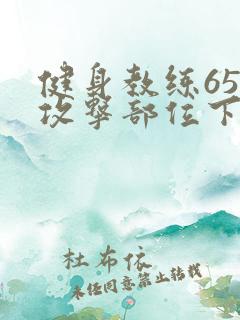 健身教练65
攻擊部位下
杜布依
未经同意禁止转载